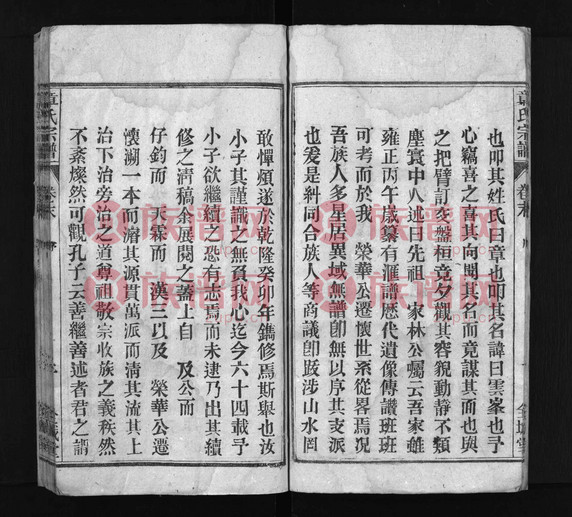 也叩其姓氏曰章也叩其名諱曰雲峯也予
心竊喜之喜其向聞其名而竟謀其面也與
之把臂訂交盤桓竟夕觀其容貌動靜不類
塵寰中人述曰先祖 家林公囑云吾家雖
雍正丙午歲纂有滙譜歷代遺像傳讚班班
可考而於我 榮華公遷懷世系從畧焉况
吾族人多星居異域無譜卽無以序其支派
也爰是糾同合族人等商議卽跋涉山水罔
敢憚煩遂於乾隆癸卯年鐫修焉斯舉也汝
小子其謹識之無負我心迄今六十四載予
小子欲繼續之恐有志焉而未逮乃出其續
修之淸稿余展閱之蓋上自 及公而
仔鈞而 天霖而 漢三以及 榮華公遷
懷溯一本而濬其源貫萬派而清其流其上
治下治旁治之道尊祖敬宗收族之義秩然
不紊燦然可觀孔子云善繼善述者君之謂
章氏宗譜
卷末
章氏宗譜
卷末